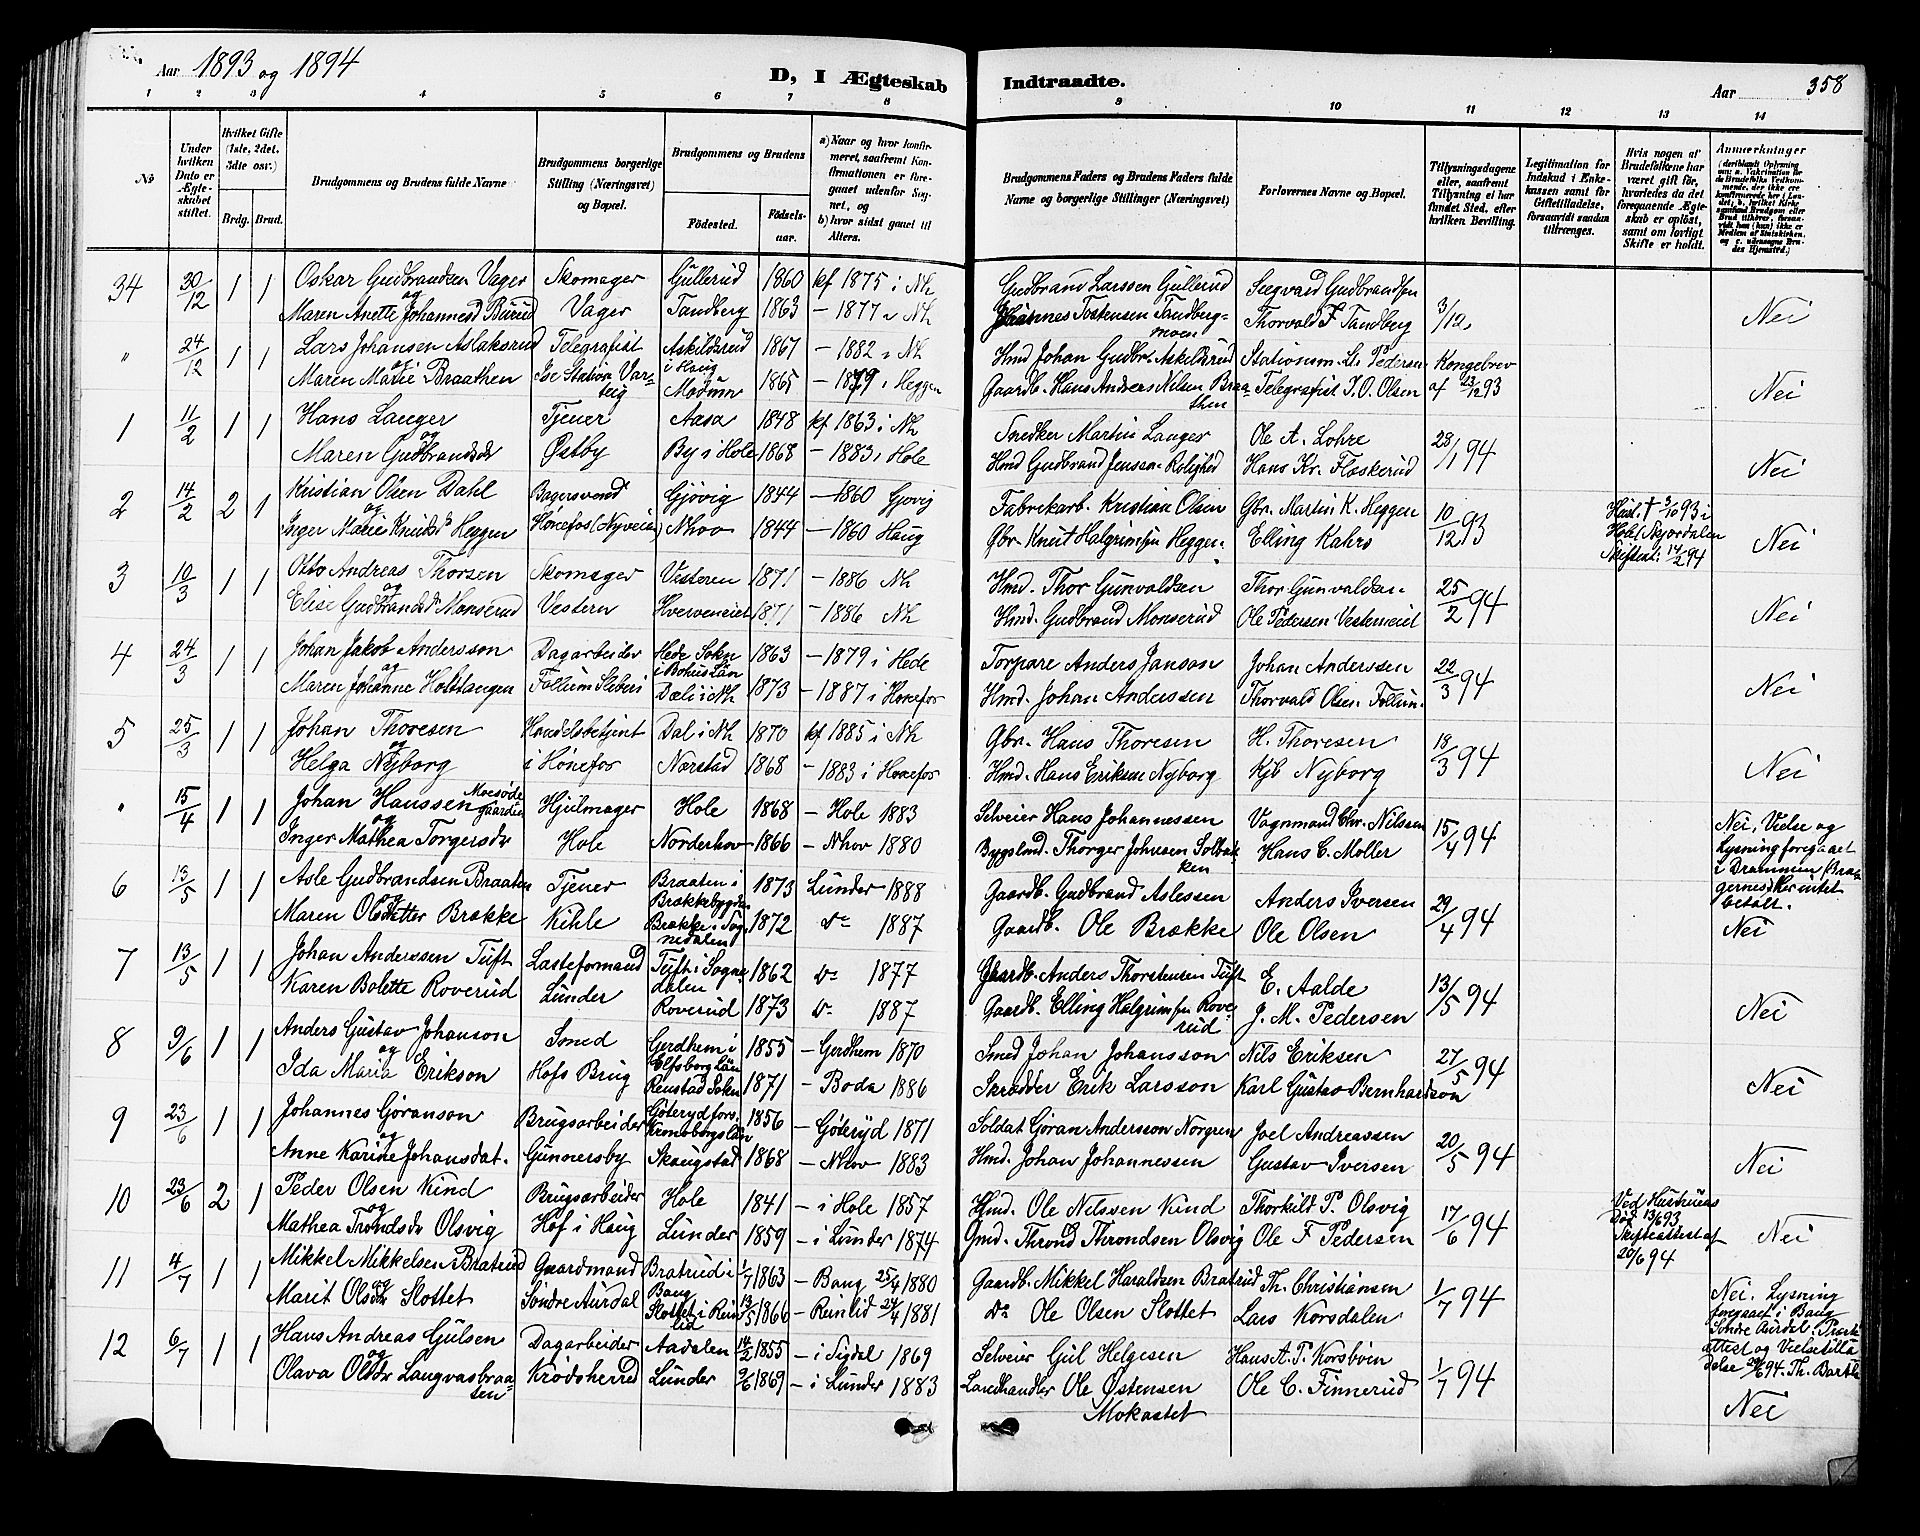 Aar 1893 og 1894
D, I Ægteskab Indtraadte.
Aar 358
1 2 3 4 5 6 7 8 9 10 11 12 13 14
No
Under hvilken Dato er Ægteskabet stiftet.
Hvilket Gifte (1ste, 2det, 3dte osv.)
Brdg. Brud.
Brudgommens og Brudens fulde Navne
Brudgommens borgerlige Stilling (Næringsvei) og Bopæl.
Brudgommens og Brudens
Födested.
Födselsaar.
a) Naar og hvor konfirmeret, saafremt Konfirmationen er foregaaet udenfor Sognet, og
b) hvor sidst gaaet til Alters.
Brudgommens Faders og Brudens Faders fulde Navne og borgerlige Stillinger (Næringsvei)
Forlovernes Navne og Bopæl.
Tillysningsdagene eller, saafremt Tillysning ei har fundet Sted, efter hvilken Bevilling.
Legitimation for Indskud i Enkekassen samt for Giftetilladelse, forsaavidt saadan tiltrænges.
Hvis nogen af Brudefolkene har været gift för, hvorledes da det foregaaende Ægteskab er oplöst, samt om lovligt Skifte er holdt.
Anmærkninger
34 30/12 1 1 Oskar Gudbrandsen Vager Skomager Gullerud 1860 kf 1875 i Nh Gudbrand Larssen Gullerud Seegvard Gudbrandsen 3/12
og
Maren Anette Johannesd Burud Vager Tandberg 1863 – 1877 " Nh Johannes Tostensen Tandbergmoen Thorvald F Tandberg Nei
" 24/12 1 1 Lars Johansen Aslaksrud Telegrafist Askildsrud i Haug 1867 – 1882 i Nh Hmd Johan Gudbr. Askildsrud Stationsm. L. Pedersen Kongebrev
og
Maren Marie Braathen Ise Station Varteig Modum 1865 – 1879 i Heggen Gaardb. Hans Andreas Nilsen Braathen Telegrafist P. O. Olsen af 23/12 93 Nei
1 11/2 1 1 Hans Langer Tjener Aasa 1848 kf 1863 i Nh Snedker Martin Langer Ole A. Lohre 28/1 94
og
Maren Gudbrandsdr Østby By i Hole 1868 – 1883 i Hole Hmd Gudbrand Jenssen Rolighed Hans Kr. Flaskerud Nei
2 14/2 2 1 Kristian Olsen Dahl Bagersvend Gjøvig 1844 – 1860 Gjøvig Fabrikarb. Kristian Olsen Gbr. Martin K. Heggen 10/12 93 Hust. † 3/10 93 i
og
Inger Marie Knudsd. Heggen Hønefos (Nyveien) Nhov 1844 – 1860 Haug Gbr. Knut Halgrimsen Heggen Elling Kahrs Skifteat: 14/2 94 Nei
3 10/3 1 1 Otto Andreas Thorsen Skomager Vesteren 1871 – 1886 Nh Hmd. Thor Gunvaldsen Thor Gunvaldsen 25/2 94
og
Elise Gudbrandsd. Monserud Vestern Hverveneiet 1871 – 1886 Nh Hmd. Gudbrand Monserud Ole Pedersen Vesterneiet Nei
4 24/3 1 1 Johan Jakob Andersson Dagarbeider Hede Sokn i Bohus Län 1863 – 1879 i Hede Torpare Anders Janson Johan Anderssen 22/3 94
og
Maren Johanne Holstangen Follum Sliberi Dæli i Nh 1873 – 1887 i Hønefos Hmd. Johan Anderssen Thorvald Olsen Follum Nei
5 25/3 1 1 Johan Thoresen Handelsbetjent Dal i Nh 1870 kf 1885 i Nh Gbr. Hans Thoresen H. Thoresen 18/3 94
og
Helga Nyborg i Hønefos Narstad 1868 – 1883 i Hønefos Hmd. Hans Eriksen Nyborg Kjb Nyborg Nei
" 15/4 1 1 Johan Hanssen Hjulmager Hole 1868 – Hole 1883 Selveier Hans Johannessen Vognmand Chr. Nilssen 15/4 94 Nei. Vielse og
og
Inger Mathea Torgersdr Hole Norderhov 1866 – Nhov 1880 Bygslmd. Thorger Johnsen Solbakken Hans C. Moller Lysning foregaaet i Drammen (Bragernes) Her intet betalt.
6 13/5 1 1 Asle Gudbrandsen Braaten Tjener Braaten i Brækkebygden 1873 Lunder 1888 Gaardb. Gudbrand Aslessen Anders Iversen 29/4 94
og
Maren Olsdatter Brække Kihle Brække i Sognedalen 1872 do 1887 Gaardb. Ole Brække Ole Olsen Nei
7 13/5 1 1 Johan Anderssen Tuft Lasteformand Tuft i Sognedalen 1862 do 1877 Gaardb. Anders Thorstensen Tuft E. Aalde 13/5 94
Karen Bolette Roverud Lunder Roverud 1873 do 1887 Gaardb. Elling Halgrimsen Roverud J. M. Pedersen Nei
8 9/6 1 1 Anders Gustav Johanson Smed Gerdhem i Elfsborg Län 1855 – Gerdhem 1870 Smed Johan Johansson Nils Eriksen 27/5 94
og
Ida Maria Erikson Hofs Brug Renstad Sokn 1871 – Boda 1886 Skrædder Erik Larsson Karl Gustav Bernhardson Nei
9 23/6 1 1 Johannes Gøranson Brugsarbeider Göteryd fors. Kronoborgs län 1856 – Göteryd 1871 Soldat Göran Andersson Norgren Joel Andreassen 20/5 94
og
Anne Karine Johansdat. Gunnersby Skaugstad 1868 – Nhov 1883 Hmd. Johan Johannessen Gustav Iversen Nei
10 23/6 2 1 Peder Olsen Kind Brugsarbeider Hole 1841 – i Hole 1857 Hmd. Ole Nilssen Kind Thorkild P. Olsvig 17/6 94 Ved Hustrues Död 13/6 93
og
Mathea Trondsdr Olsvig Hof i Haug Lunder 1859 – i Lunder 1874 Gmd. Thrond Throndsen Olsvig Ole F Pedersen Skifteattest af 20/6 94 Nei
11 4/7 1 1 Mikkel Mikkelsen Bratrud Gaardmand Bratrud i Bang 1/7 1863 – Bang 25/4 1880 Gaardb. Mikkel Haraldsen Bratrud Th. Christiansen 1/7 94
og
Marit Olsdr Slottet Søndre Aurdal Slottet i Reinlid 13/5 1866 – Reinlid 24/4 1881 do Ole Olsen Slottet Lars Korsdalen Nei. Lysning foregaaet i Bang Søndre Aurdal.
12 6/7 1 1 Hans Andreas Gulsen Dagarbeider Aadalen 14/2 1855 – i Sigdal 1869 Selveier Gul Helgesen Hans A. P. Korsbøen 1/7 94 attest og Vielsetilladelse 29/6 94. Th. Barth
og
Olava Olsdr Langvasbraaten Krødsherred Lunder 9/6 1869 – i Lunder 1883 Landhandler Ole Østensen Mokastet Ole C. Finnerud Nei